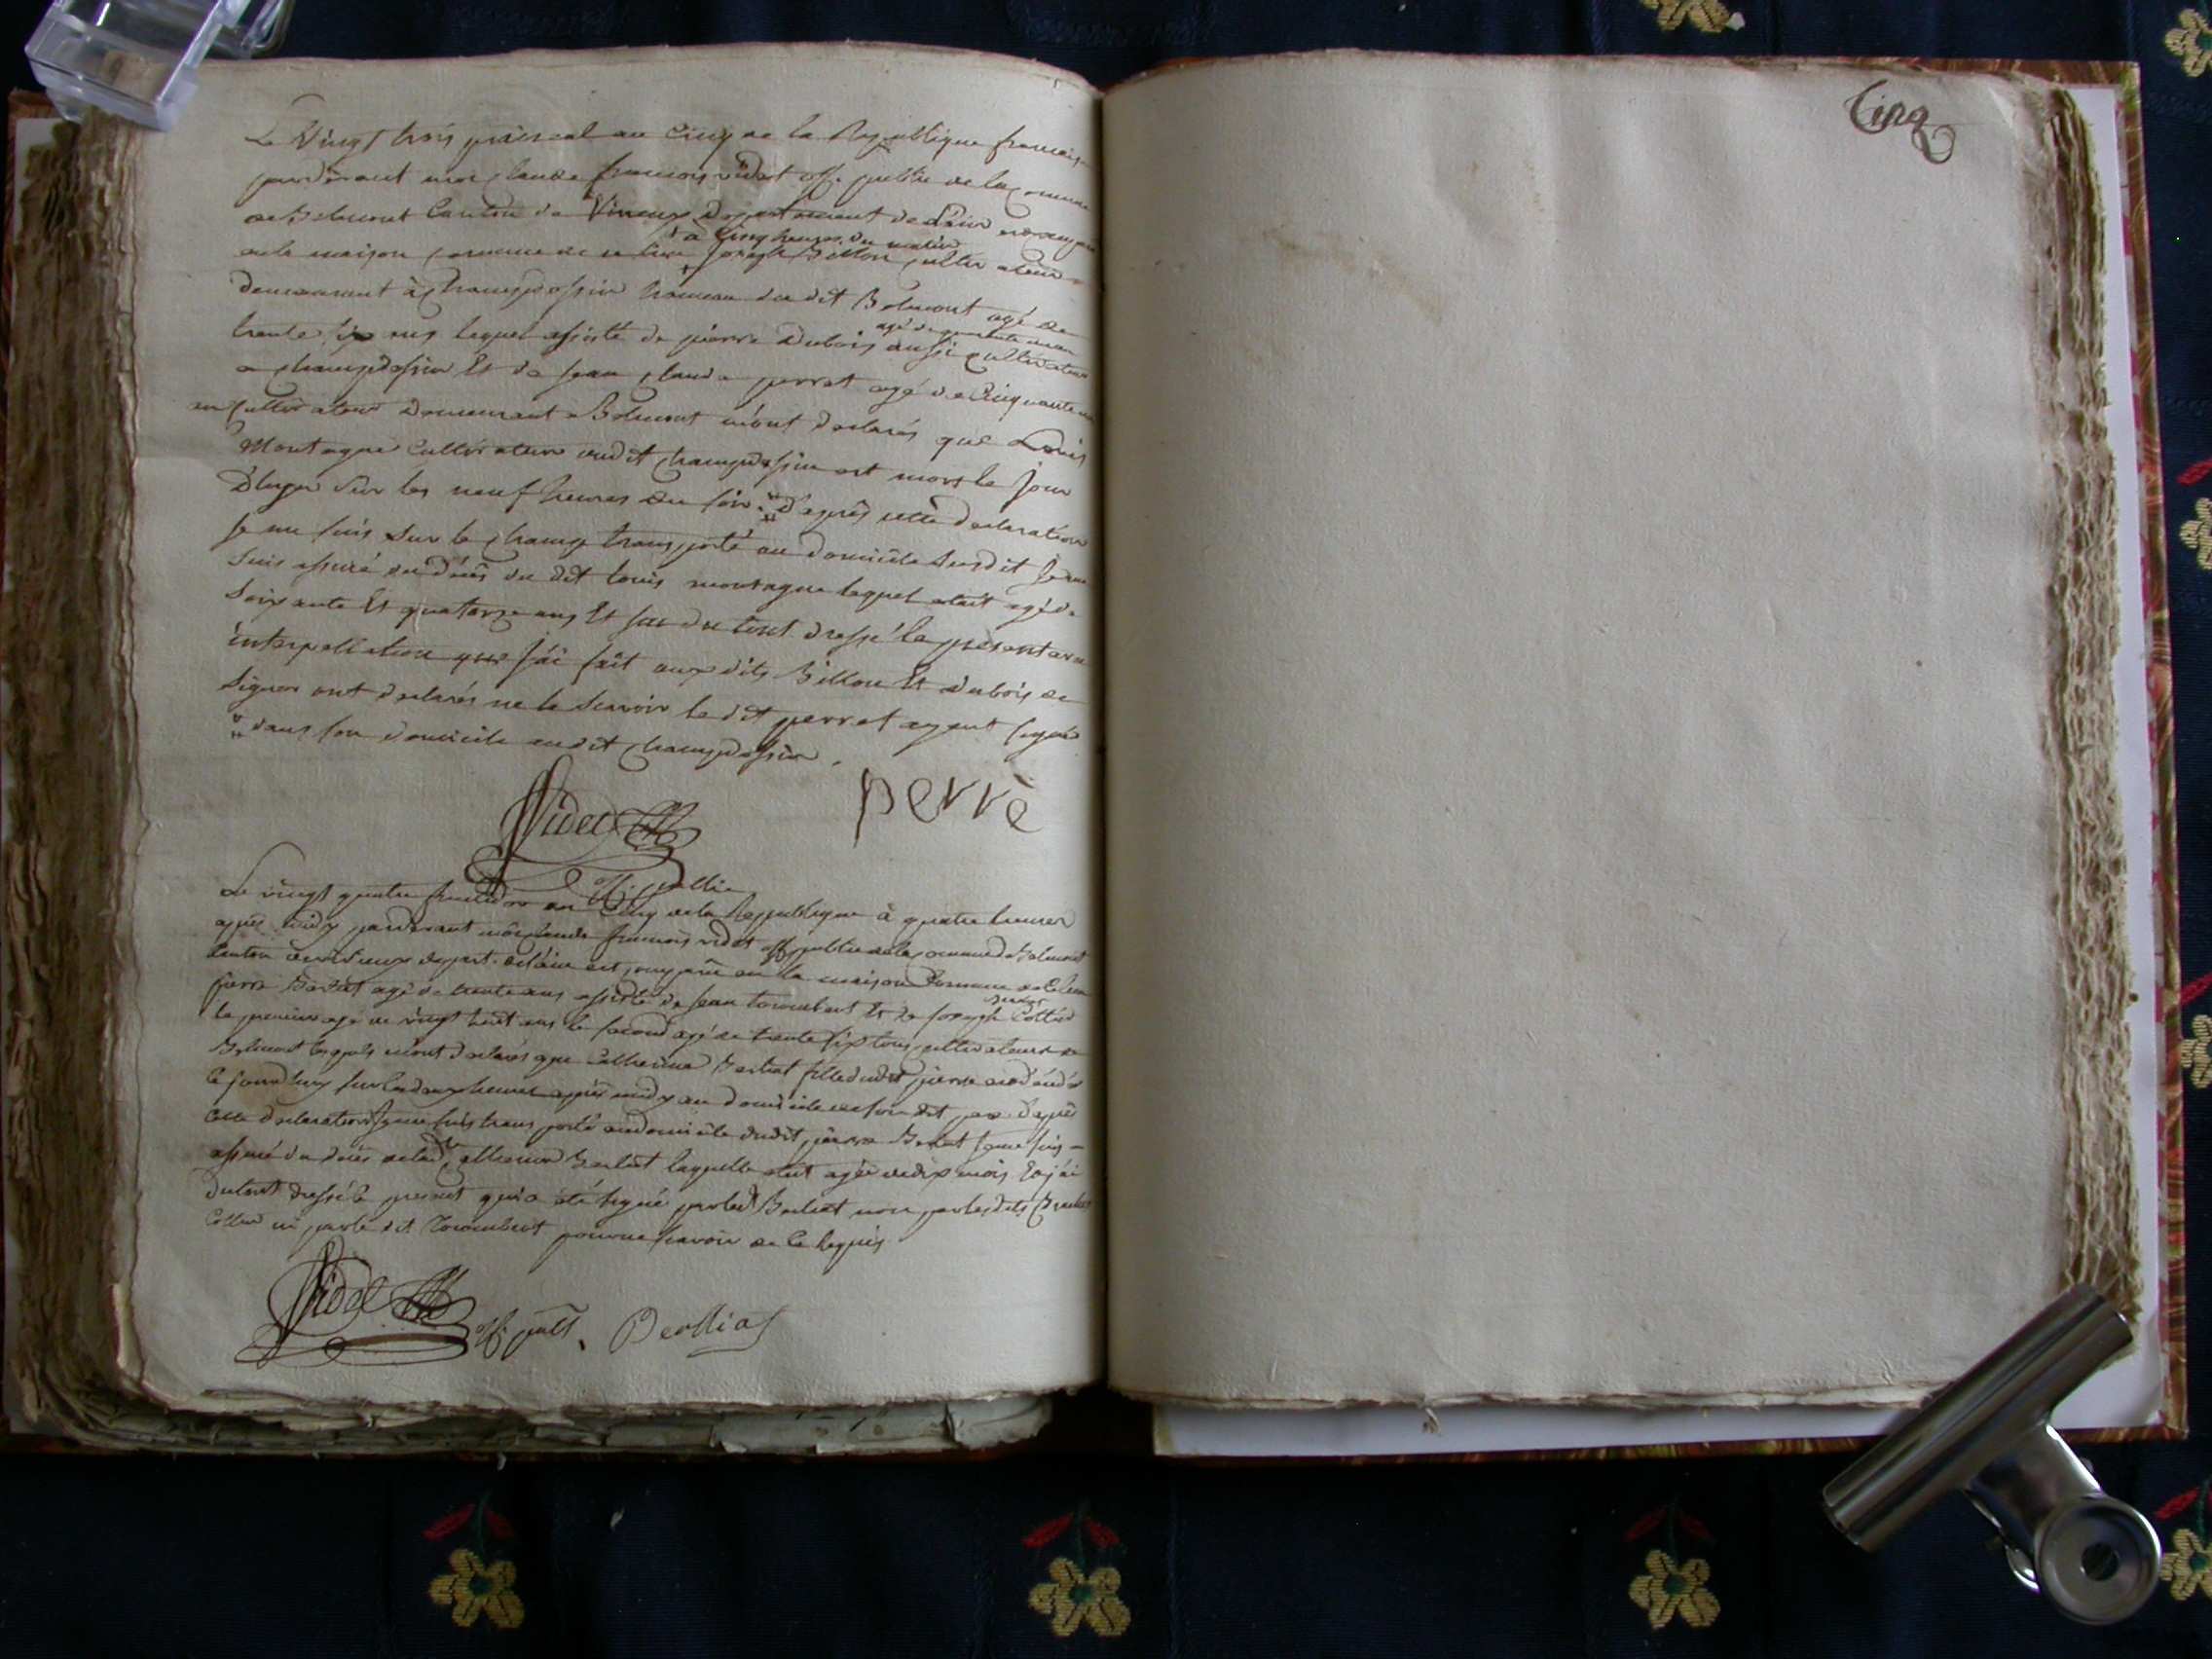 Le Vingt trois prairial an Cinq de la Republique francaise
pardevant moi Claude francois videt off. public de la Commune
de Belmont Canton de Virieux Departement de L'ain
a cinq heures du matin
de la maison Commune de ce lieu joseph Billon cultivateur
demeurant à Champdossin hameau du dit Belmont agé de
agé de
trente six ans lequel assisté de pierre Dubois aussi cultivateur
a Champdossin Et de jean claude perret agé de Cinquante
cultivateur demeurant a Belmont m'ont declarés que Louis
Montagne Cultivateur audit Champdossin est mort le jour
D'hyer sur les neuf heures du soir. D'après cette declaration
je me suis sur le champ transporté au domicile susdit je me
suis assuré du décès du dit louis montagne lequel etait agé de
soixante Et quatorze ans Et sur du tout dressé le present
interpellation que j'ai fait aux dits Billon Et dubois de
signer ont declarés ne le scavoir le dit perret ayant signé
dans son domicile audit Champdossin.
perrè
Videt
Off. public
Le vingt quatre fructidor an Cinq de la Republique à quatre heures
apres midy pardevant moi Claude francois videt off public de la commune de Belmont
Canton de virieux depart. de l'ain est comparu en la maison Commune de Ce lieu
pierre agé de trente ans assisté de jean Torombert Et de joseph Collet
le premier agé de vingt huit ans le second agé de trente six tous cultivateurs de
Belmont lesquels m'ont declarés que Catherine Berliat fille dudit pierre est décédée
Ce jourd'huy sur les deux heures après midy au domicile de son dit pere. D'après
cette declaration je me suis transporté au domicile dudit pierre Berliat je me suis
assuré du décès de lad. Catherine Berliat laquelle etait agée de dix mois Et j'ai
du tout dressé le present qui a été signé par led. Berliat non par lesdits
Collet ni par le dit Torombert pour ne scavoir de Ce Requis
Videt off. publ. Berlliat
Cinq